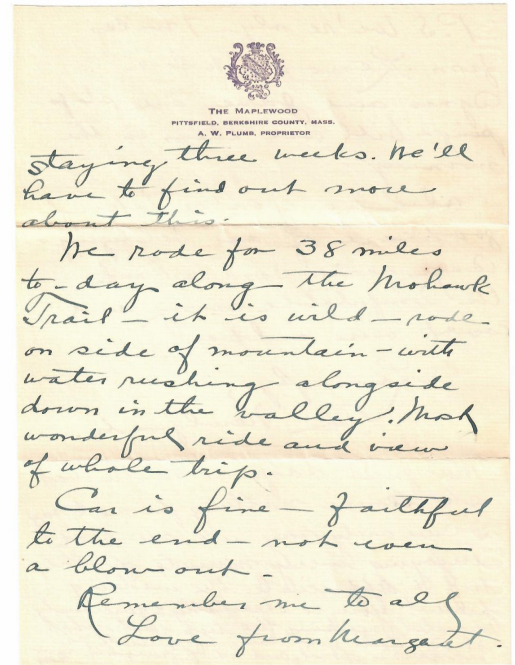 THE MAPLEWOOD
PITTSFIELD, BERKSHIRE COUNTY, MASS.
A. W. PLUMB, PROPRIETOR
staying three weeks. We'll
have to find out more
about this.
We rode for 38 miles
to-day along the Mohawk
Trail - it is wild - rode
on side of mountain - with
water rushing alongside
down in the valley. Most
wonderful ride and view
of whole trip.
Car is fine - faithful
to the end - not even
a blow out -
Remember me to all
Love from Margaret.